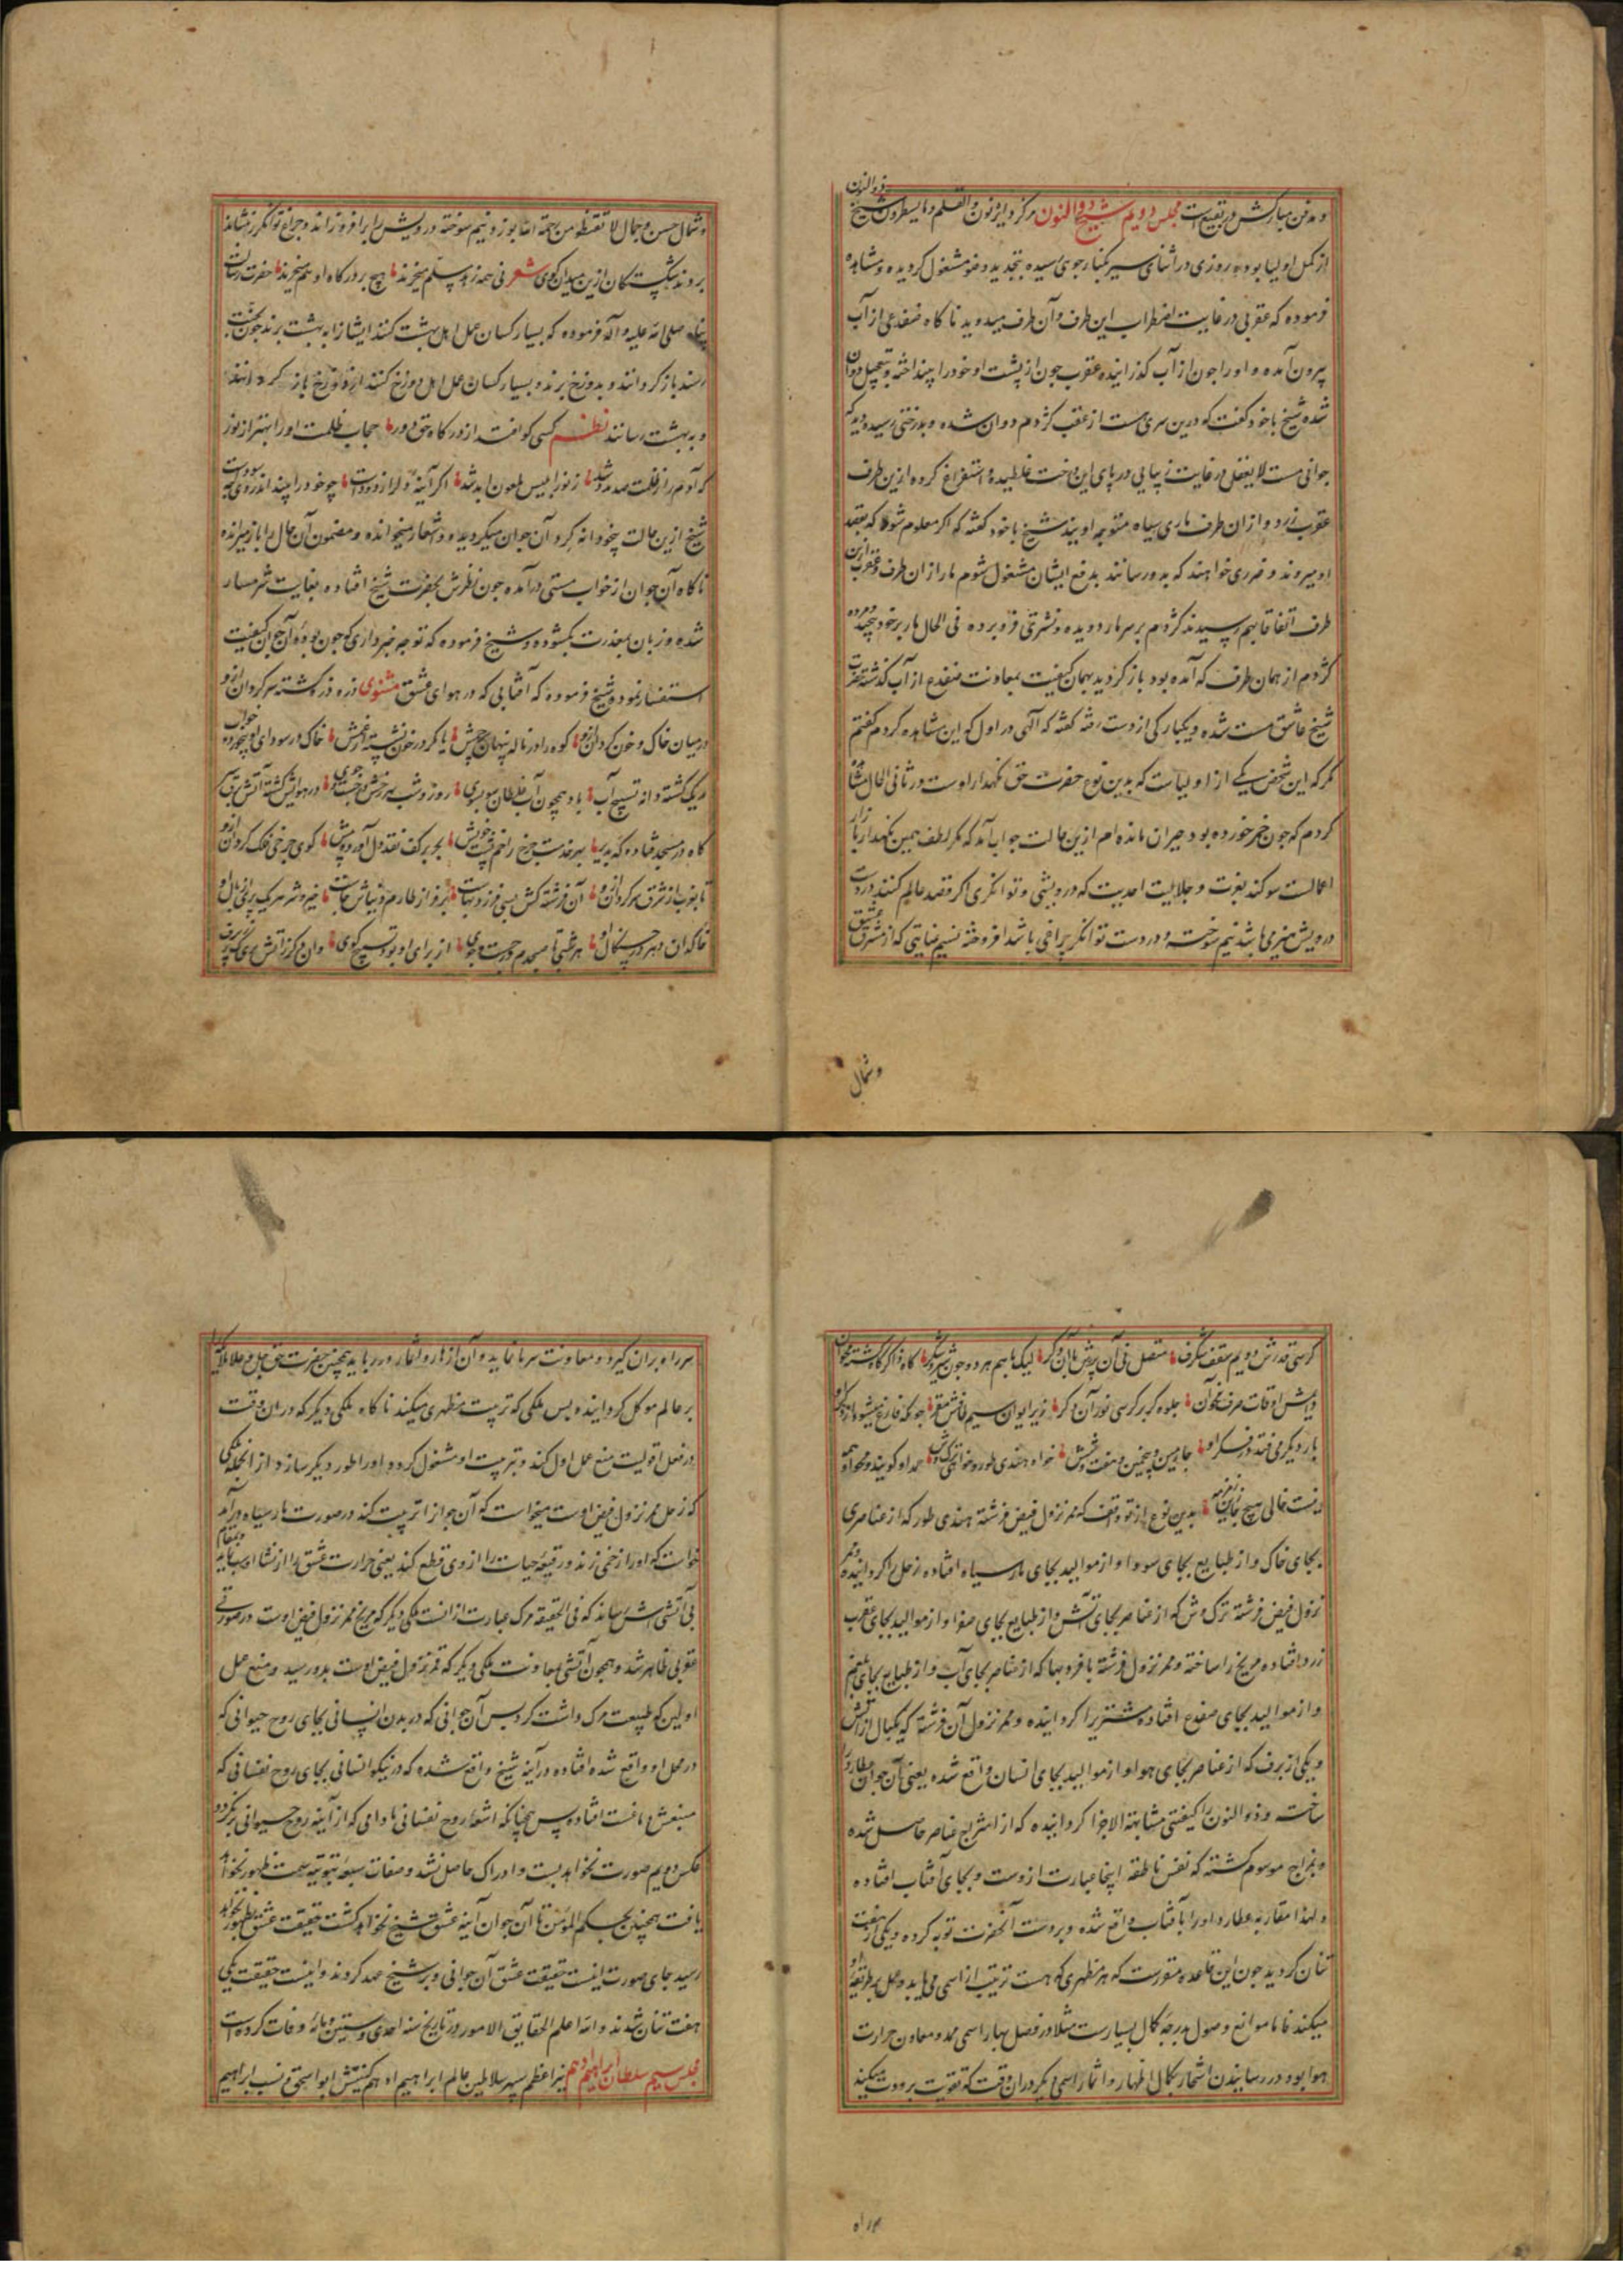 و مدفن مبارکش در بقیع است مجلس دویم شیخ ذوالنون مرکز دایره نون والقلم و مایسطرون شیخ ذوالنون
از کمل اولیا بوده روزی در اثنای سیر بکنار جوی رسیده بتجدید وضو مشغول کردیده و مشاهده
فرموده که عقربی در غایت اضطراب این طرف و آن طرف میدوید ناکاه ضفدعی از آب
بیرون آمده و او را چون از آب کذرانیده عقرب چون از پشت او خود را انداخته و بتعجیل دوان
شده شیخ با خود کفت که درین سری هست از عقب کژدم دوان شده و بدرختی رسیده دید که
جوانی مست لایعقل در غایت زیبایی در پای این درخت غلطیده و استفراغ کرده ازین طرف
عقرب زرد و از آن طرف ماری سیاه متوجه اویند شیخ با خود کفته که اکر معلوم شود که بقصد
او میروند و ضرری خواهند که بدو رسانند بدفع ایشان مشغول شوم مار از آن طرف و عقرب ازین
طرف اتفاقا بهم رسیدند کژدم بر سر مار دویده و نشتری فرو برده فی الحال مار بر خود پیچیده و مرده
کژدم از همان طرف که آمده بود باز کردید بهمان کیفیت بمعاونت ضفدع از آب کذشته حضرت
شیخ عاشق مست شده و یکبارکی از دست رفته کفته که الهی در اول که این مشاهده کردم کفتم
مکر که این شخص یکی از اولیاست که بدین نوع حضرت حق نکهدار اوست و در ثانی الحال مشاهده
کردم که چون خمر خورده بود حیران مانده‌ام ازین حالت جواب آمد که مکر لطف همین نکهدار
اعمالست سوکند بعزت و جلالیت احدیت که درویشی و توانکری اکر قصد عالم کنند در دست
درویش هیزمی باشد نیم سوخته و در دست توانکر چراغی باشد افروخته نسیم عنایتی که از مشرق عشق
و شمال
و شمال حسن و جمال لا تقنطوا من رحمة الله بوزد نیم سوخته درویش را برافروزاند و چراغ توانکر نشاند
بروند شکستکان ازین میدان کوی شعر نی همه زهد مسلم میخرند هیچ بر درکاه او هم میخرند حضرت رسالت
پناه صلی الله علیه و آله فرموده که بسیار کسان عمل اهل بهشت کنند ایشانرا به بهشت برند چون بجنت
رسند باز کردانند و بدوزخ برند و بسیار کسان عمل اهل دوزخ کنند از دوزخ باز کردانند
و به بهشت رسانند نظم کسی کو افتد از درکاه حق دور حجاب ظلمت او را بهتر از نور
که آدم را ز ظلمت صد مدد شد ز نور ابلیس ملعون ابد شد اکر آئینهٔ دل را زدودست چو خود را بیند اندر وی چه سودست
شیخ ازین حالت بیخودانه کرد آن جوان میکردید و اشعار میخوانده و مضمون آن حال را باز میرانده
ناکاه آن جوان از خواب مستی درآمده چون نظرش بحضرت شیخ افتاده بغایت شرمسار
شده و زبان بمعذرت بکشوده و شیخ فرموده که تو چه خبر داری که چون بوده آن جوان کیفیت
استفسار نمود و شیخ فرموده که آفتابی که در هوای عشق مثنوی ذره ذره کشته سرکردان ازو
در میان خاک و خون کردان ازو کوه را در ناله پنهان پا کمر در خون نشسته خاک در سودای او
ریک کشته دانه تسبیح آب باد همچون آب غلطان سو بسوی روز و شب
کاه در مسجد فتاده بحر بر کف نقد دل آورده پیش کوی چرخی فلک کردان ازو
تا بنوب از شرق سرکردان ازو آن فرشته کش
خاکدان هر شبی تا صبحدم در جست و جوی از برای او بود تسبیح کوی
کرسی قدرش دویم سقف شکرف متصل نی آن برش با آن دکر لیک با هم هر دو چون شیر و شکر
و بیش اوقات صرف جلوه کر بر کرسی نور آن دکر زیر ایوان سیم
بار دیکر می فتد در فکر او چارمین و پنجمین و هفت و شش خواه هندی طور و خواه ترکی وش حمد او کویند و مدح او همه
نیست خالی هیچ جا زین زمزمه بدین نوع ازتو واقف که ممر نزول فیض فرشته هندی طور که از عناصری
بجای خاک و از طبایع بجای سودا و از موالید بجای مار سیاه افتاده زحل را کردانیده و ممر
نزول فیض فرشته ترک وش که از عناصر بجای آتش و از طبایع بجای صفرا و از موالید بجای عقرب
زرد افتاده مریخ را ساخته و ممر نزول فرشته با فر و بها که از عناصر بجای آب و از طبایع بجای بلغم
و از موالید بجای ضفدع افتاده مشتریرا کردانیده و ممر نزول آن فرشته که یکبال از آتش
و یکی از برف که از عناصر بجای هوا و از موالید بجای انسان واقع شده یعنی آن جوان عطارد را
ساخت و ذوالنون را کیفیتی متشابهة الاجزا کردانیده که از امتزاج عناصر حاصل شده
و بمزاج موسوم کشته که نفس ناطقه اینجا عبارت ازوست و بجای آفتاب افتاده
و لهذا مقارنه عطارد او را بآفتاب واقع شده و بر دست آنحضرت توبه کرده و یکی از هفت
تنان کردید چون این قاعده مقررست که هر مظهری که هست تربیت از اسمی می‌یابد و عمل بر طریقه او
میکند فاما موانع وصول بدرجه کمال بسیارست مثلا در فصل بهار اسمی ممد و معاون حرارت
هوا بود در رسانیدن اشجار بکمال اظهار و اثمار اسمی دیکر در آن وقت که تقویت برودت میکند
سر راه
سر راه بر آن کیرد و معاونت سرما نماید و آن ازهار و اثمار در رباید همچنین حضرت حق جل و علا ملایکه
بر عالم موکل کردانیده پس ملکی که تربیت مظهری میکند ناکاه ملکی دیکر که در آن وقت
در فعل اقویست منع عمل اول کند و بتربیت او مشغول کرده او را طور دیکر سازد از آنجمله ملکی
که زحل ممر نزول فیض اوست میخواست که آن جوانرا تربیت کند در صورت مار سیاه درآمد
خواست که او را زخمی زند و رقیقه حیات را از وی قطع کند یعنی حرارت عشق را از نشاء او
بی آتشی‌اش رساند که فی الحقیقه مرک عبارت از آنست ملکی دیکر که مریخ ممر نزول فیض اوست در صورت
عقربی ظاهر شد و همچون آتشی بمعاونت ملکی دیکر که قمر نزول فیض اوست بدو رسید و منع عمل
اولین که طبیعت مرک داشت کرد پس آن جوانی که در بدن انسانی بجای روح حیوانی که
در محل او واقع شده افتاده در آینه شیخ واقع شده که در نیکو انسانی بجای روح نفسانی که
منبعش دماغست افتاده پس چنانکه اشعه روح نفسانی مادامی که از آینه روح حیوانی برنکردد
عکس دویم صورت نخواهد بست و ادراک حاصل نشد و صفات سبعه ثبوتیه سمت ظهور نخواهد
یافت همچنین بحکم المؤمن تا آن جوان آینه عشق شیخ نخواهد کشت حقیقت عشق بظهور نخواهد
رسید جای صورت اینست حقیقت عشق آن جوانی و بر شیخ عهد کردند و اینست حقیقت یکی
هفت تنان شدند والله اعلم الحقایق الامور در تاریخ سنه احدی و ستین و مائه وفات کرده است
مجلس سیم سلطان ابراهیم ادهم نیر اعظم سپهر سلاطین عالم ابراهیم ادهم کنیتش ابو اسحق و نسب ابراهیم